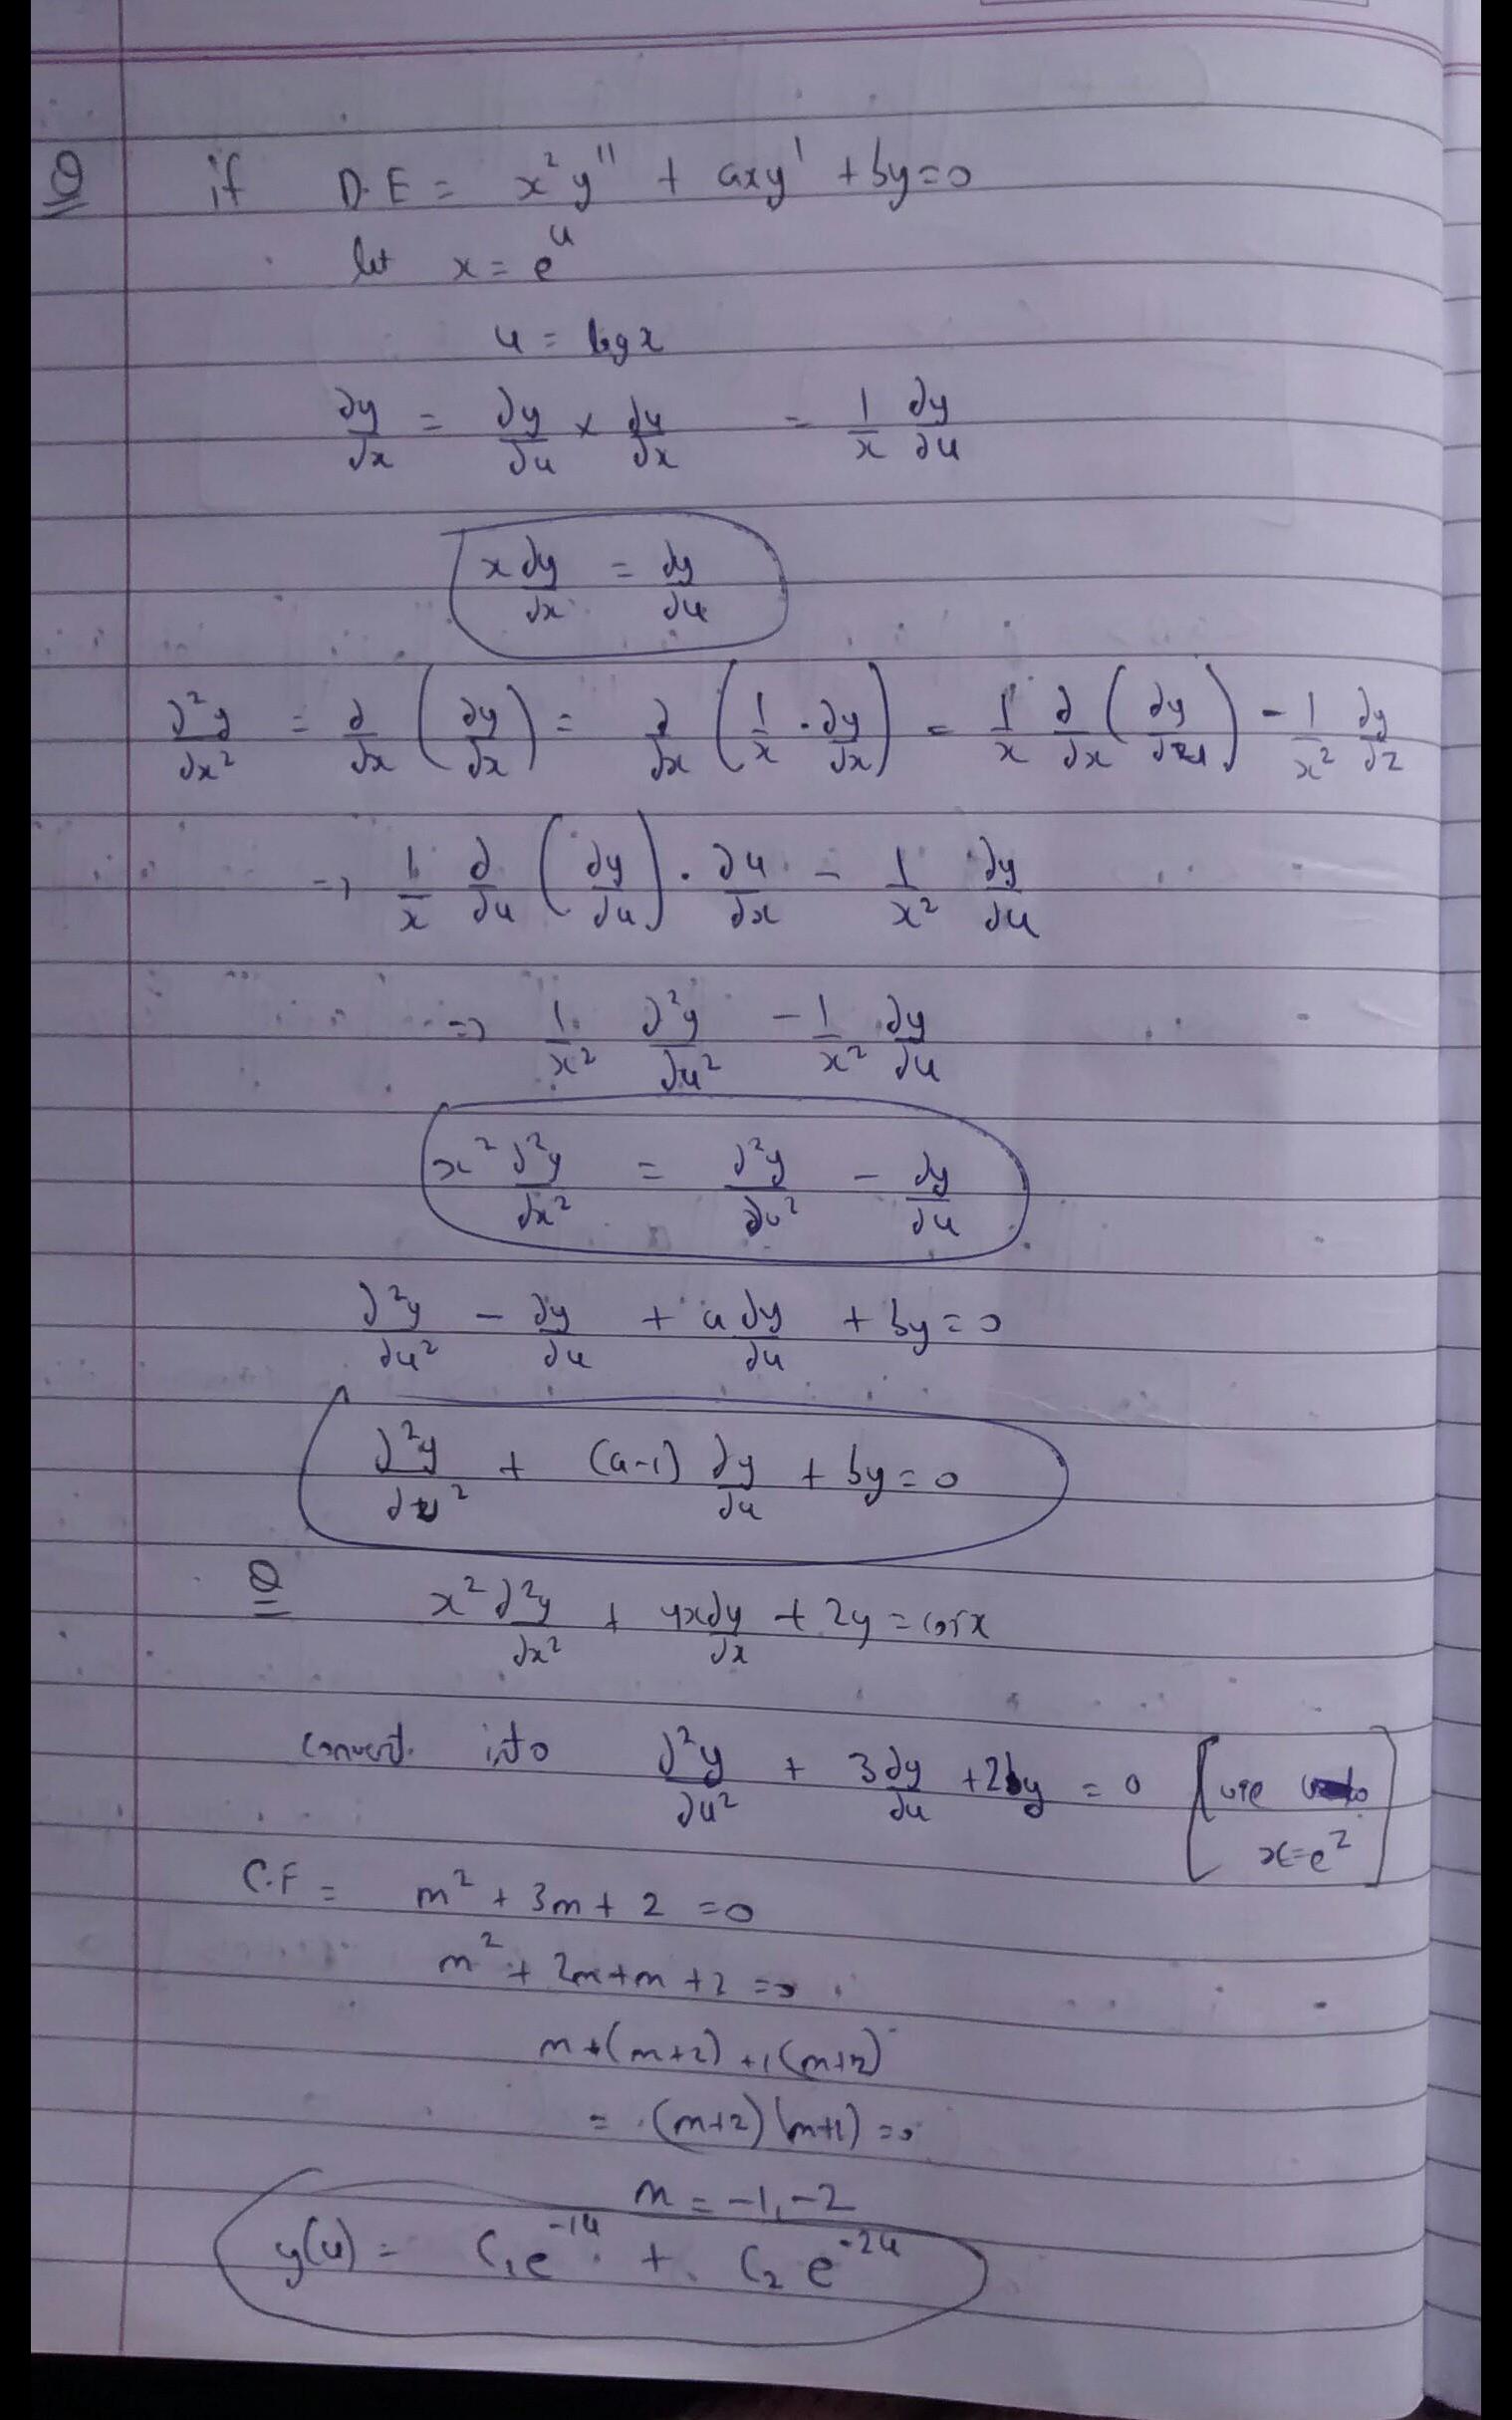 Q if D.E = x² y'' + axy' + by = 0
let x = e^u
u = log x
∂y/∂x = ∂y/∂u × ∂u/∂x = 1/x ∂y/∂u
x ∂y/∂x = ∂y/∂u
∂²y/∂x² = ∂/∂x (∂y/∂x) = ∂/∂x (1/x · ∂y/∂x) = 1/x ∂/∂x (∂y/∂u) - 1/x² ∂y/∂z
=> 1/x ∂/∂u (∂y/∂u) · ∂u/∂x - 1/x² ∂y/∂u
=> 1/x² ∂²y/∂u² - 1/x² ∂y/∂u
x² ∂²y/∂x² = ∂²y/∂u² - ∂y/∂u
∂²y/∂u² - ∂y/∂u + a ∂y/∂u + by = 0
∂²y/∂u² + (a-1) ∂y/∂u + by = 0
Q x² ∂²y/∂x² + 4x ∂y/∂x + 2y = cos x
convert into ∂²y/∂u² + 3 ∂y/∂u + 2y = 0 [use x = e^z]
C.F = m² + 3m + 2 = 0
m² + 2m + m + 2 = 0
m + (m+2) + 1(m+2)
= (m+2) (m+1) = 0
m = -1, -2
y(u) = C₁e^-1u + C₂ e^-2u